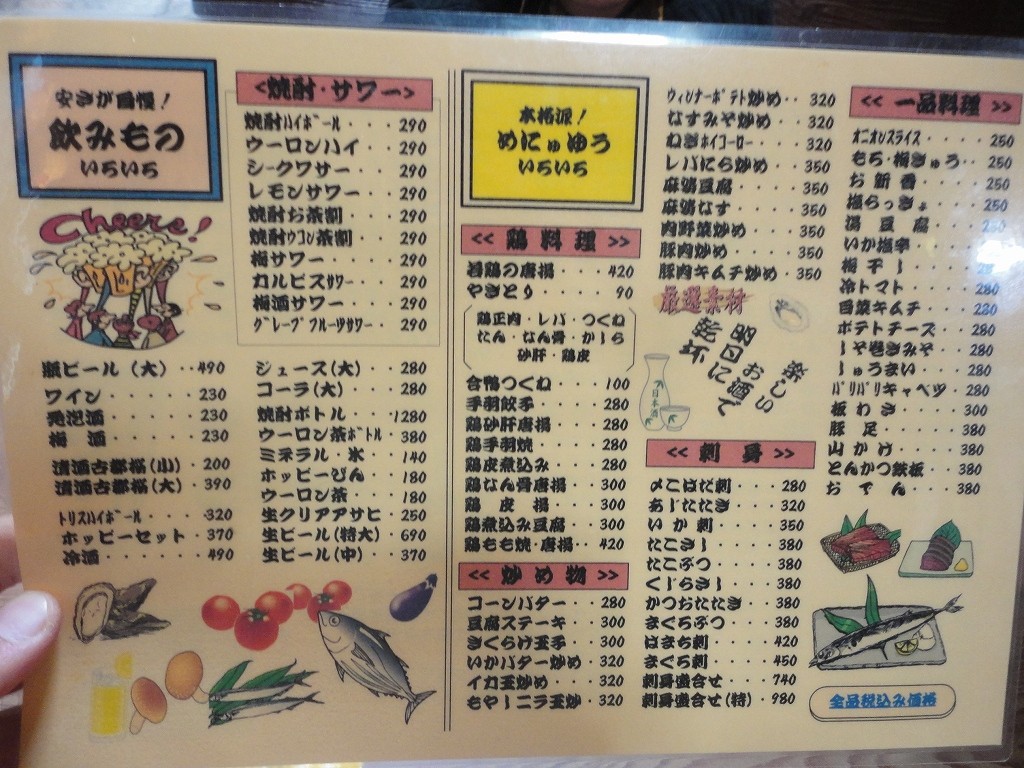 安さが自慢!
飲みもの
いろいろ
<焼酎・サワー>
焼酎ハイボール・・・290
ウーロンハイ・・・290
シークワサー・・・290
レモンサワー・・・290
焼酎お茶割・・・290
焼酎ウコン茶割・・290
梅サワー・・・・290
カルピスサワー・・290
梅酒サワー・・・290
グレープフルーツサワー・・290
Cheers!
瓶ビール(大)・・490
ワイン・・・・・230
発泡酒・・・・・230
梅酒・・・・・・230
清酒古都桜(小)・200
清酒古都桜(大)・390
トリスハイボール・・・320
ホッピーセット・370
冷酒・・・・・490
ジュース(大)・・280
コーラ(大)・・・280
焼酎ボトル・・・1280
ウーロン茶ボトル・380
ミネラル・氷・・140
ホッピーびん・・180
ウーロン茶・・・180
生クリアアサヒ・250
生ビール(特大)・690
生ビール(中)・・370
本格派!
めにゅゆう
いろいろ
<< 鶏料理 >>
若鶏の唐揚・・・420
やきとり・・・・90
鶏正肉・レバ・つくね
たん・なん骨・かしら
砂肝・鶏皮
合鴨つくね・・・100
手羽餃子・・・・280
鶏砂肝唐揚・・・280
鶏手羽焼・・・・280
鶏皮煮込み・・・280
鶏なん骨唐揚・・300
鶏皮揚・・・300
鶏煮込み豆腐・・300
鶏もも焼・唐揚・・420
<< 炒め物 >>
コーンバター・・280
豆腐ステーキ・・300
きくらげ玉子・・300
いかバター炒め・・320
イカ玉炒め・・・320
もやしニラ玉炒・320
ウィンナーポテト炒め・・320
なすみそ炒め・・320
ねぎホイコーロー・・・320
レバにら炒め・・350
麻婆豆腐・・・・350
麻婆なす・・・・350
肉野菜炒め・・・350
豚肉炒め・・・・350
豚肉キムチ炒め・350
厳選素材
楽しい
お酒で
明日に
乾杯
日本酒
<< 刺身 >>
〆こはだ刺・・・280
あじたたき・・・320
いか刺・・・・350
たこさし・・・・380
たこぶつ・・・・380
くじらさし・・・380
かつおたたき・・380
まぐろぶつ・・・380
はまち刺・・・・420
まぐろ刺・・・・450
刺身盛合せ・・・740
刺身盛合せ(特)・980
<< 一品料理 >>
オニオンスライス・・・250
もろ・梅きゅう・・250
お新香・・・・250
塩らっきょ・・・250
湯豆腐・・・
いか塩辛・・・
梅干し・・・・
冷トマト・・・・280
白菜キムチ・・・280
ポテトチーズ・・280
しそ巻きみそ・・280
しゅうまい・・・280
パリパリキャベツ・280
板わさ・・・・300
豚足・・・・・380
山かけ・・・・380
とんかつ鉄板・・380
おでん・・・・380
全品税込み価格